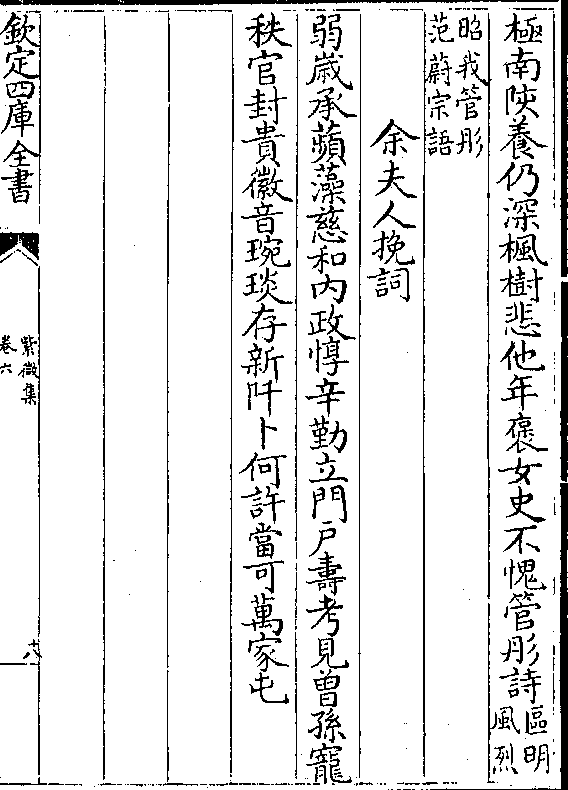 極南陔養仍深楓樹悲他年褒女史不愧管彤詩區明風烈
昭我管彤范蔚宗語
余夫人挽詞
弱嵗承蘋藻慈和内政惇辛勤立門戸壽考見曽孫寵
秩官封貴徽音琬琰存新阡卜何許當可萬家屯
欽定四庫全書
紫微集
卷六
十八